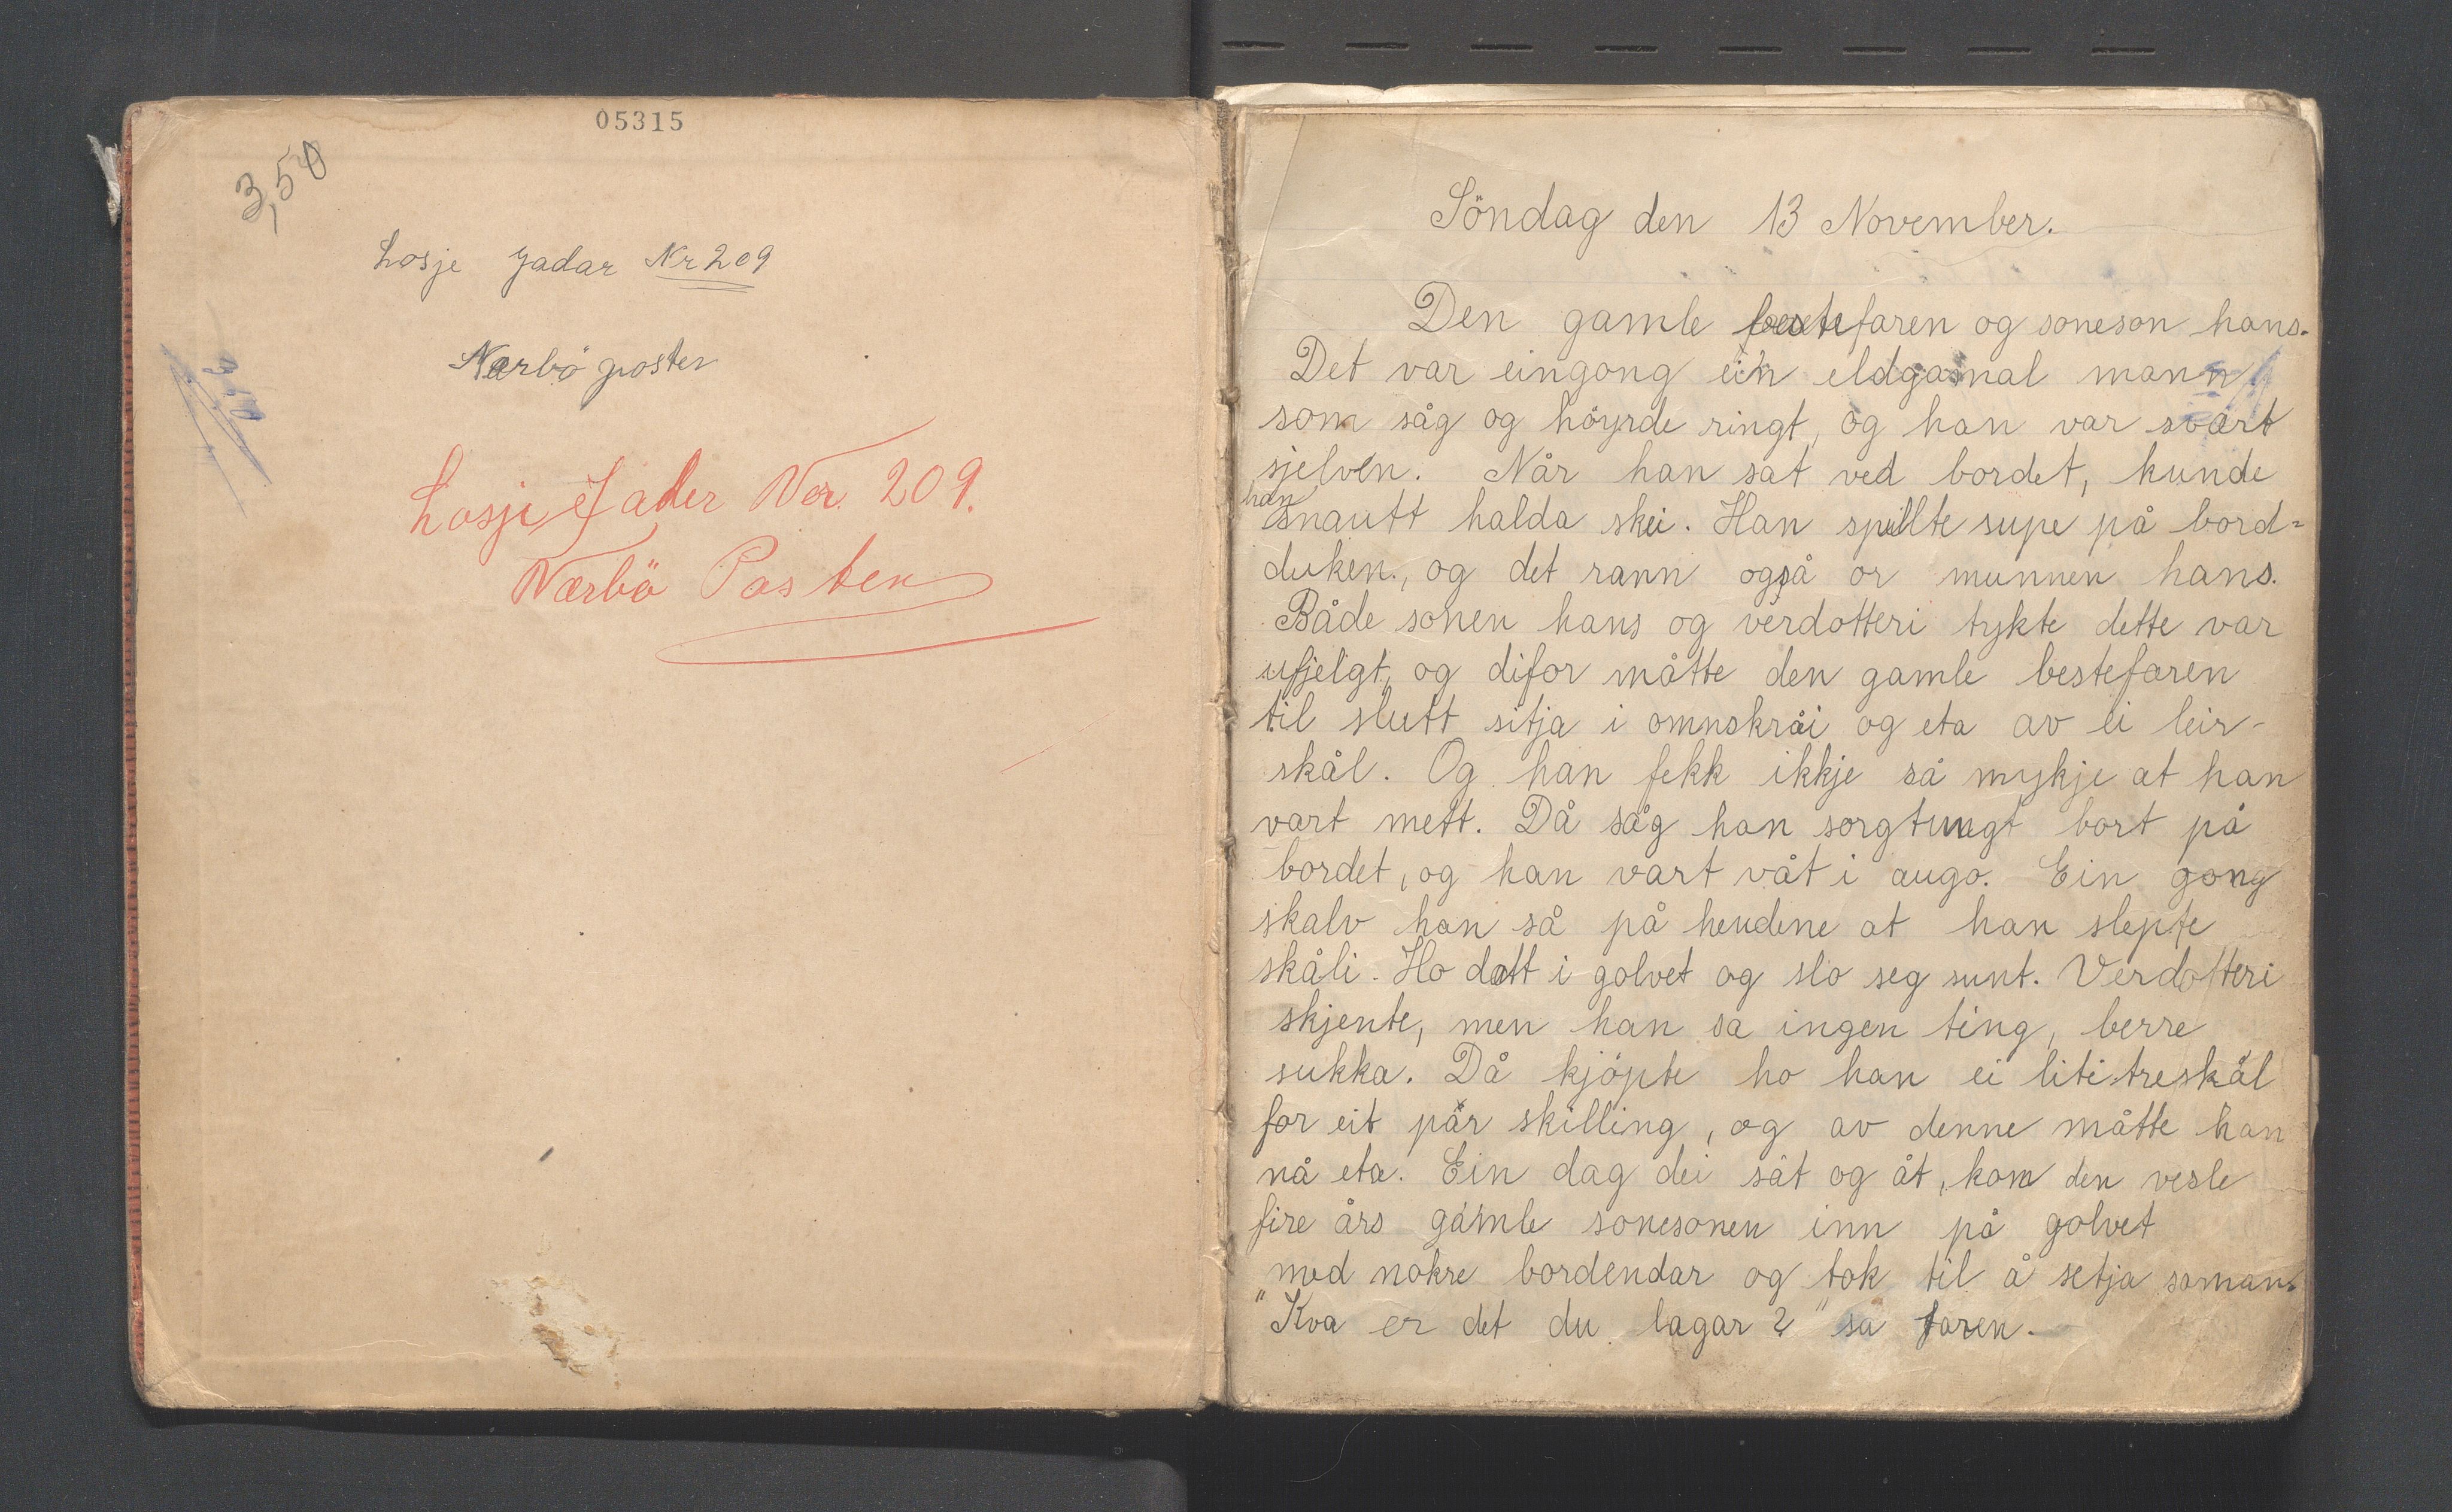 05315
3,50
Losje Jadar Nr 209
Nærbö posten
Losje Jader Ner. 209.
Nærbö Posten
Söndag den 13 November.
Den gamle bestefaren og soneson hans.
Det var eingong ein eldgamal mann
som såg og höyrde ringt, og han var svært
sjelven. Når han sat ved bordet, kunde
han
snautt halda skei. Han spillte supe på bord=
duken., og det rann også or munnen hans.
Både sonen hans og verdotteri tykte dette var
ufjelgt, og difor måtte den gamle bestefaren
til slutt sitja i omnskråi og eta av ei leir-
skål. Og han fekk ikkje så mykje at han
vart mett. Då såg han sorgtungt bort på
bordet, og han vart våt i augo. Ein gong
skalv han så på hendene at han slepte
skåli. Ho datt i golvet og slo seg sunt. Verdotteri
skjente, men han sa ingen ting, berre
sukka. Då kjöpte ho han ei liti treskål
for eit pår skilling, og av denne måtte han
nå eta. Ein dag dei såt og åt, kom den vesle
fire års gamle sonesonen inn på golvet
med nokre bordendar og tok til å setja saman.
"Kva er det du lagar?" sa faren.